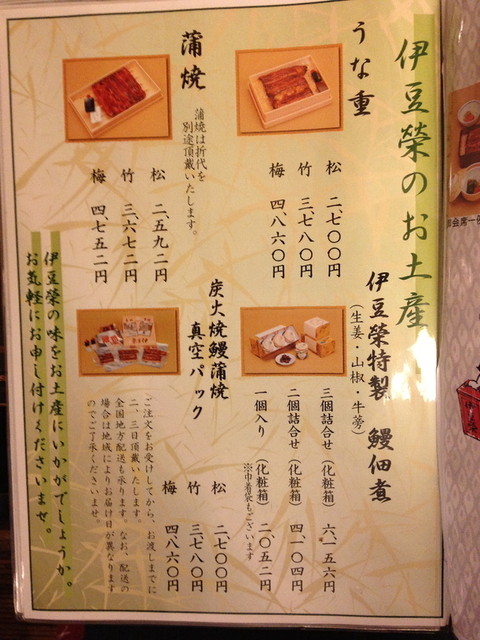 伊豆榮のお土産
うな重
松 二、七〇〇円
竹 三、七八〇円
梅 四、八六〇円
蒲焼
蒲焼は折代を
別途頂戴いたします。
松 二、五九二円
竹 三、六七二円
梅 四、七五二円
伊豆榮特製 鰻佃煮
(生姜・山椒・牛蒡)
三個詰合せ (化粧箱) 六、一五六円
二個詰合せ (化粧箱) 四、一〇四円
一個入り (化粧箱) 二、〇五二円
※巾着袋もございます
炭火焼鰻蒲焼
真空パック
松 二、七〇〇円
竹 三、七八〇円
梅 四、八六〇円
ご注文をお受けしてから、お渡しまでに
二、三日頂戴いたします。
全国地方配送も承ります。なお、配送の
場合は地域によりお届け日が異なります
のでご了承くださいませ。
伊豆榮の味をお土産にいかがでしょうか。
お気軽にお申し付けくださいませ。